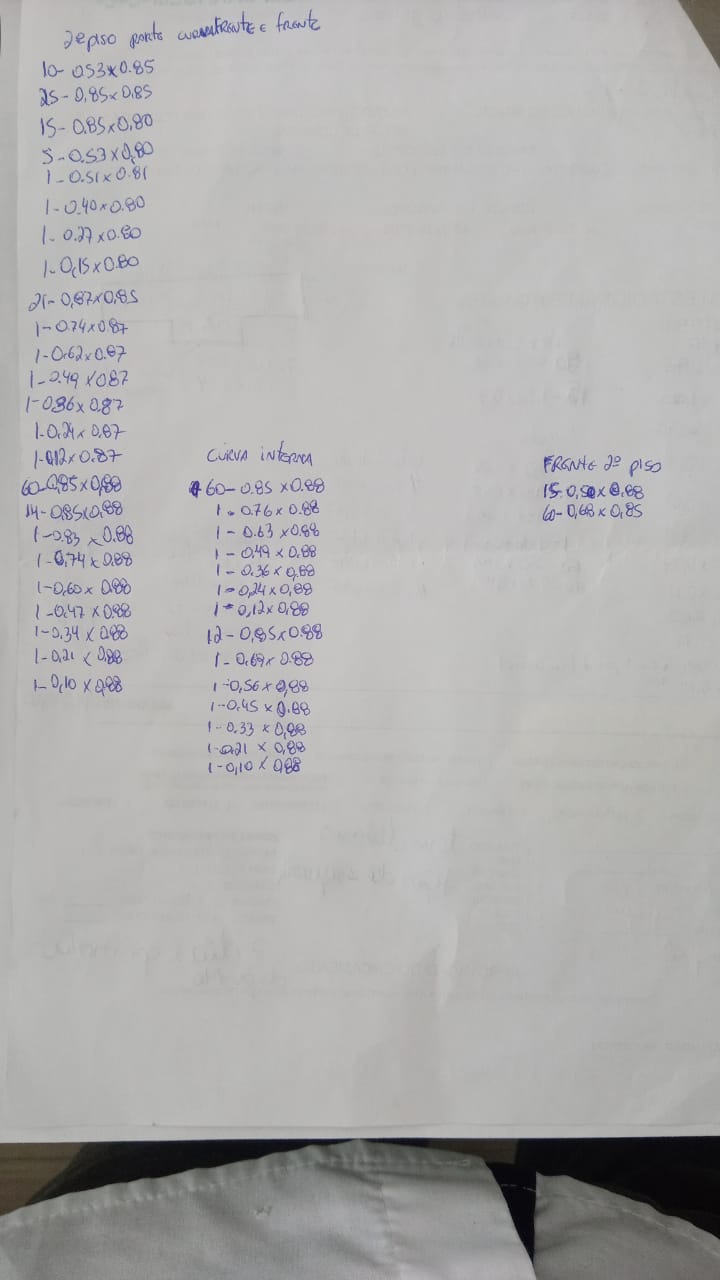 2º piso ponto FRENTE e frente
10- 0.53 x 0.85
25- 0,85 x 0,85
15- 0.85 x 0,80
5- 0.53 x 0,80
1- 0.51 x 0.81
1- 0.40 x 0.80
1- 0.27 x 0.80
1- 0,15 x 0.80
21- 0,87 x 0,85
1- 0.74 x 0.87
1- 0.62 x 0.87
1- 0.49 x 0.87
1- 0.36 x 0.87
1- 0,24 x 0,87
1- 0.12 x 0.87
60- 0,85 x 0,88
14- 0,85 x 0,88
1- 0.83 x 0.88
1- 0,74 x 0.88
1- 0,60 x 0.88
1- 0,47 x 0.88
1- 0.34 x 0.88
1- 0,21 x 0,88
1- 0,10 x 0,88
CURVA interna
60- 0.85 x 0.88
1- 0.76 x 0.88
1- 0.63 x 0.88
1- 0.49 x 0.88
1- 0.36 x 0,88
1- 0,24 x 0,88
1- 0,12 x 0,88
12- 0,85 x 0.88
1- 0,69 x 0.88
1- 0,56 x 0,88
1- 0.45 x 0.88
1- 0.33 x 0,88
1- 0.21 x 0,88
1- 0,10 x 0,88
FRENTE 2º piso
15- 0,50 x 0.88
60- 0,68 x 0,85